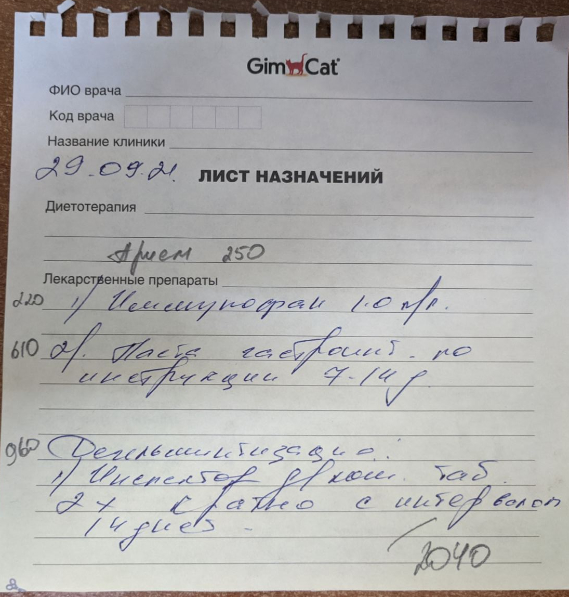 GimCat
ФИО врача
Код врача
Название клиники
29.09.21.
ЛИСТ НАЗНАЧЕНИЙ
Диетотерапия
Прием 250
Лекарственные препараты
220 1) Иммунофан 1.0 п/к.
610 2). Паста гастроинт. по
инструкции 7-14 д.
960 Дегельминтизация:
1) Инспектор д/кош. таб.
2х кратно с интервалом
14 дней.
2040